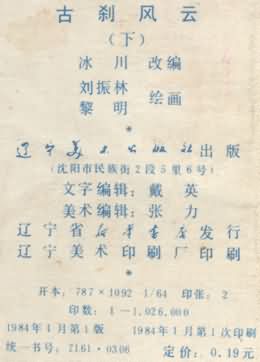 古刹风云
（下）
冰川 改编
刘振林
黎明 绘画
*
辽宁美术出版社出版
(沈阳市民族街2段5里6号)
文字编辑：戴英
美术编辑：张力
辽宁省新华书店发行
辽宁美术印刷厂印刷
*
开本：787×1092 1/64 印张：2
印数：1—1,026,000
1984年1月第1版 1984年1月第1次印刷
统一书号：7161·0306 定价：0.19元